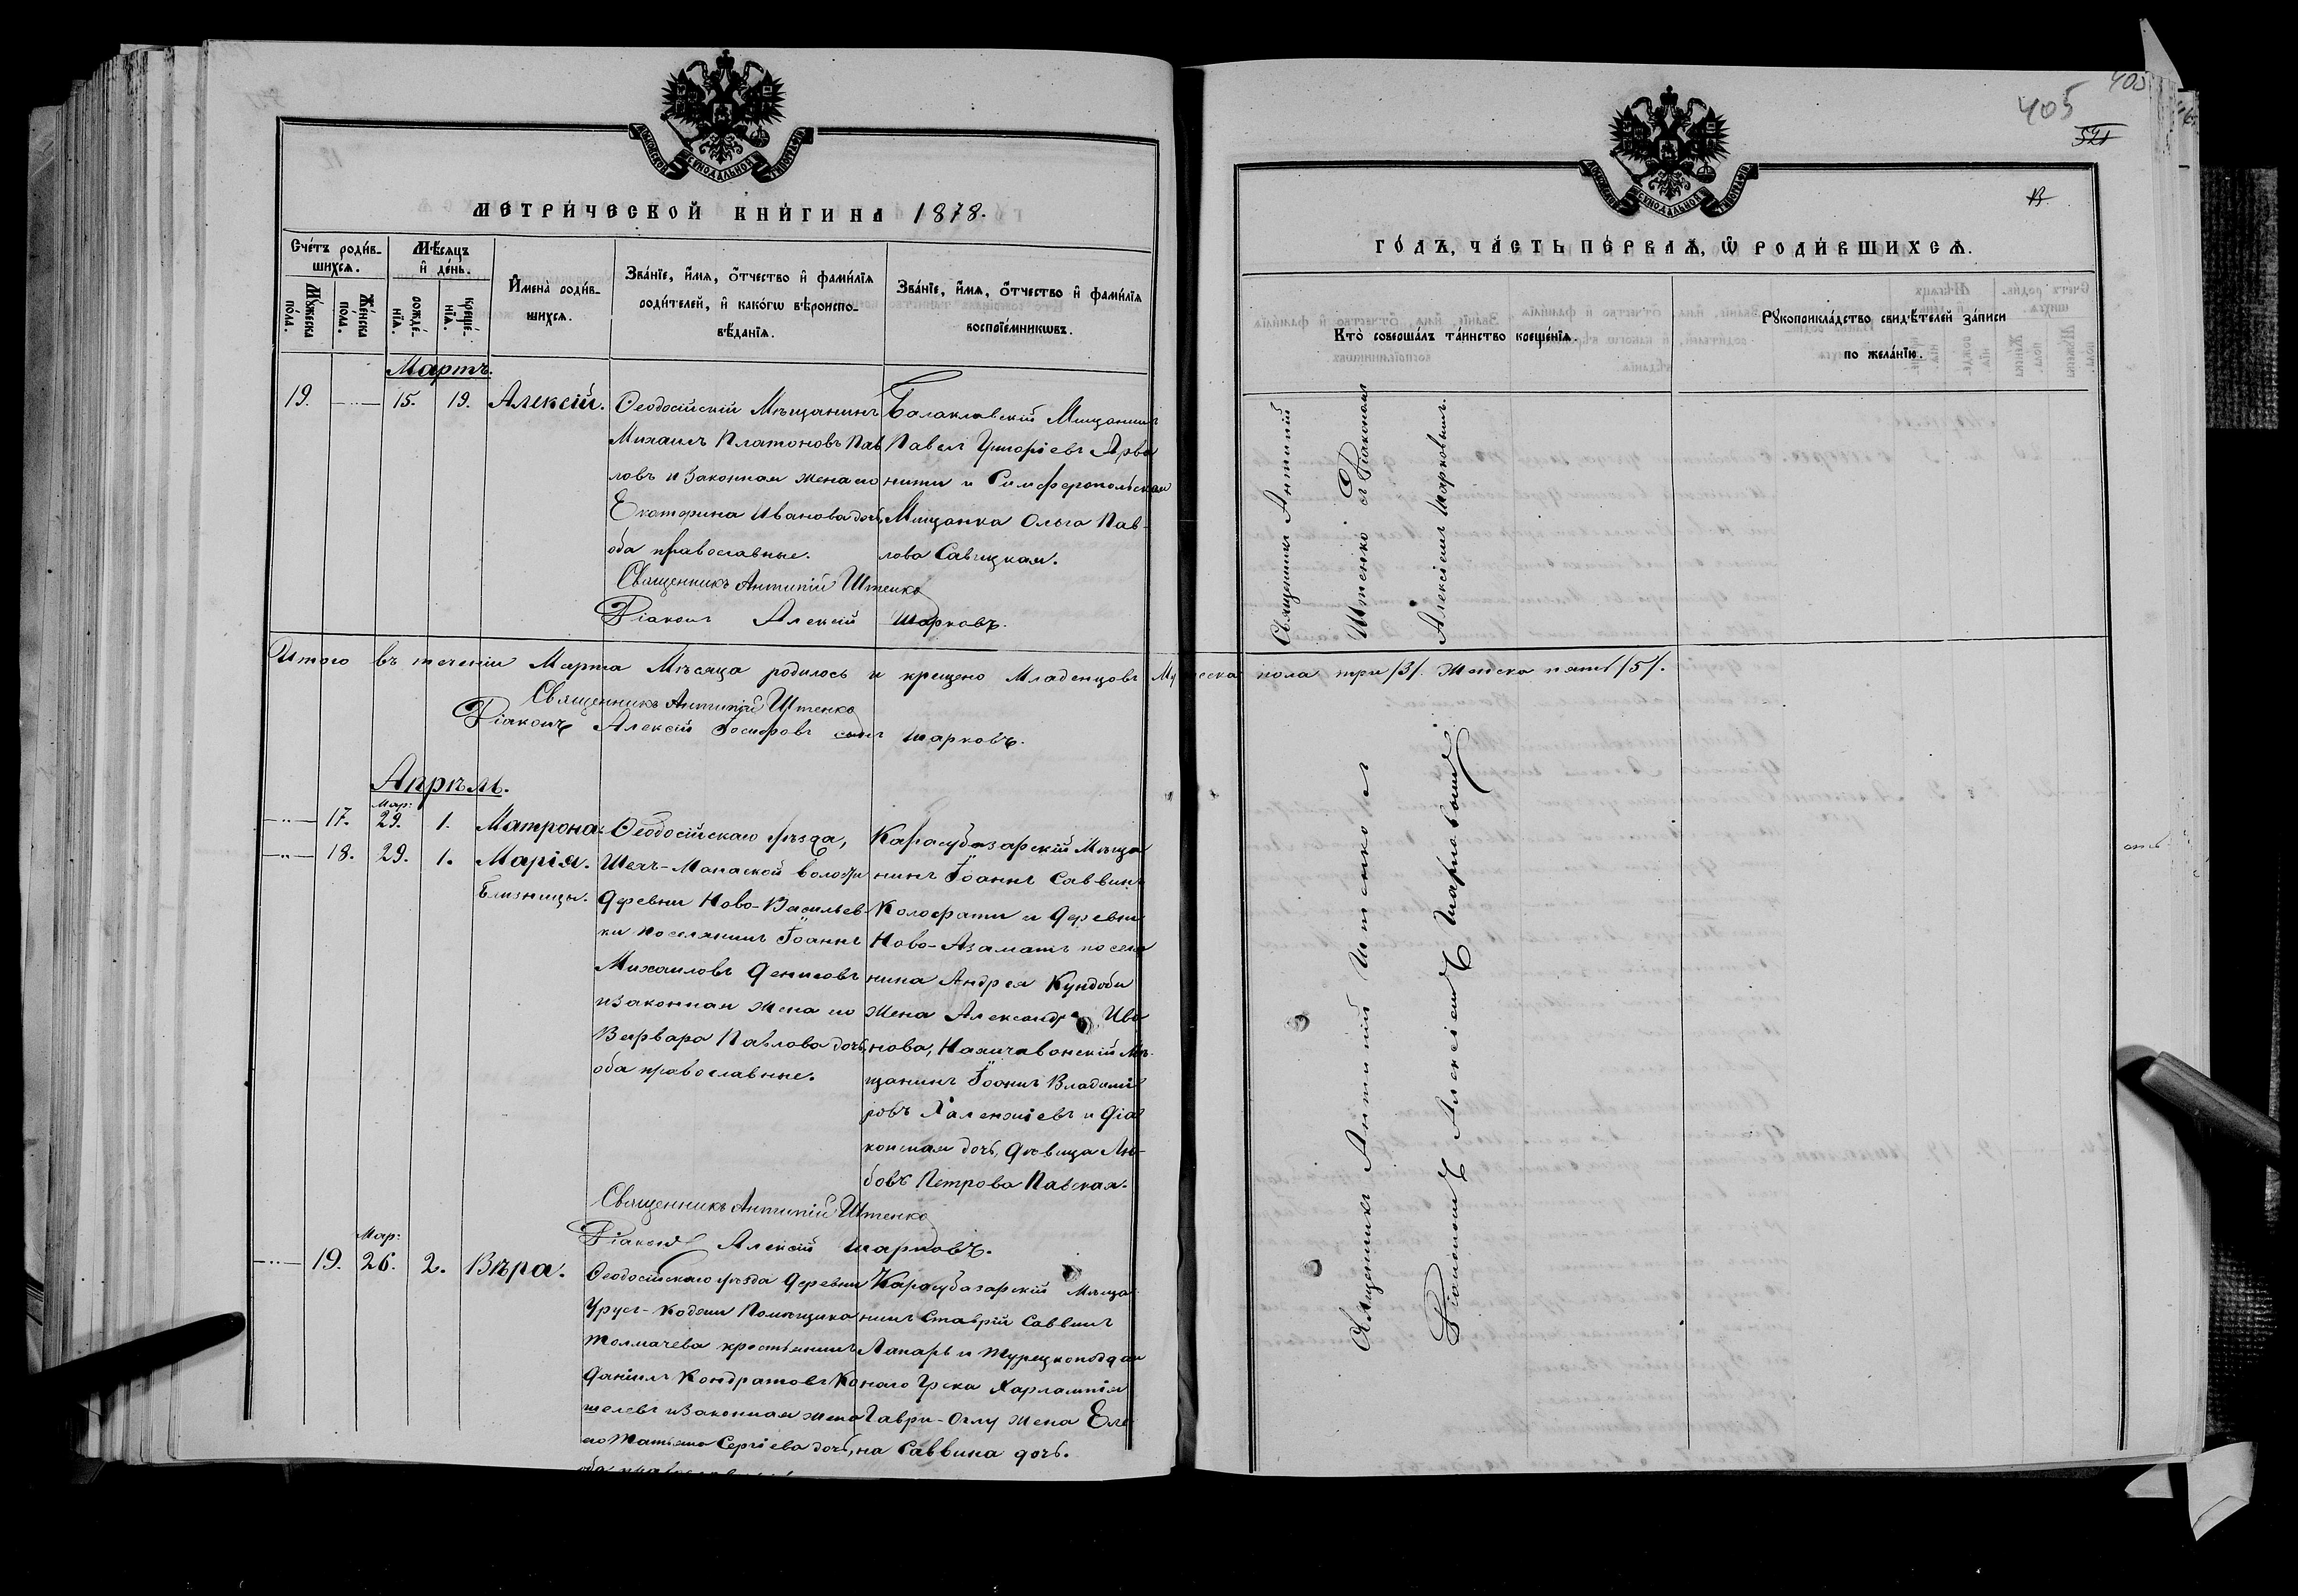 МОСКОВСКОЙ СѴНОДАЛЬНОЙ ТИПОГРАФІИ
МЕТРИ́ЧЕСКОЙ КНИ́ГИ НА 1878.
Сче́тъ роди́в-
шихсѧ.
Мѣ́сѧцъ
и҆ де́нь.
Мꙋ́жеска по́ла.
Же́нска по́ла.
рожде́-
нїѧ.
креще́-
нїѧ.
И҆мена̀ роди́в-
шихсѧ.
Зва́нїе, и҆́мѧ, ѻ҆́тчество и҆ фами́лїѧ
роди́телей, и҆ како́гѡ вѣроиспо-
вѣ́данїѧ.
Зва́нїе, и҆́мѧ, ѻ҆́тчество и҆ фами́лїѧ
воспрїе́мникѡвъ.
Мартъ.
19. 15. 19. Алексій.
Ѳеодосійскій Мѣщанинъ
Михаилъ Платоновъ Пав
ловъ и законная жена его
Екатерина Иванова дочь,
оба православные.
Балаклавскій Мищанинъ
Павелъ Григоріевъ Арва
нити и Симферопольская
Мищанка Ольга Пав-
лова Савицкая.
Священникъ Антипій Штенко
Діаконъ Алексій Шарковъ.
Итого въ теченіи Марта Мѣсяца родилось и крещено Младенцовъ Мужеска пола три /3/. Женска пять /5/.
Священникъ Антипій Штенко
Діаконъ Алексій Іосифовъ сынъ Шарковъ.
Апрѣль.
Мар:
17. 29. 1. Матрона:
18. 29. 1. Марія.
Близницы.
Ѳеодосійскаго уѣзда,
Шеих-Монаской волости
деревни Ново-Васильев-
ки поселянинъ Іоаннъ
Михаиловъ Денисовъ
и законная жена его
Варвара Павлова дочь,
оба православные.
Карасубазарскій Мѣща
нинъ Іоаннъ Саввинъ
Колофати и деревни
Ново-Азаматъ поселя
нина Андрея Кундоби
жена Александра Ива
нова, Нахичеванскій Мѣ-
щанинъ Іоаннъ Владимі
ровъ Халенжіевъ и діа
конская дочь, дѣвица Лю-
бовь Петрова Павская.
Священникъ Антипій Штенко
Діаконъ Алексій Шарковъ.
Мар:
19. 26. 2. Вѣра.
Ѳеодосійскаго уѣзда деревни
Урусъ-Коджи Помѣщика
Толмачева крестьянинъ
Даніилъ Кондратовъ Ко
шелевъ и законная жена
его Татьяна Сергіева дочь,
Карасубазарскій Мѣща
нинъ Ставрій Саввинъ
Лапарь и Турецкоподдан
наго Грека Харлампія
Гаври-Оглу жена Еле
на Саввина дочь.
405
405
521
МОСКОВСКОЙ СѴНОДАЛЬНОЙ ТИПОГРАФІИ
13.
ГО́ДЪ, ЧА́СТЬ ПЕ́РВАѦ, Ѡ҆ РОДИ́ВШИХСѦ.
Кто̀ соверша́лъ та́инство креще́нїѧ.
Рꙋкоприкла́дство свидѣ́телей за́писи
по жела́нїю.
Священникъ Антипій
Штенко съ Діакономъ
Алексіемъ Шарковымъ.
Священникъ Антипій Штенко съ
Діакономъ Алексіемъ Шарковымъ.